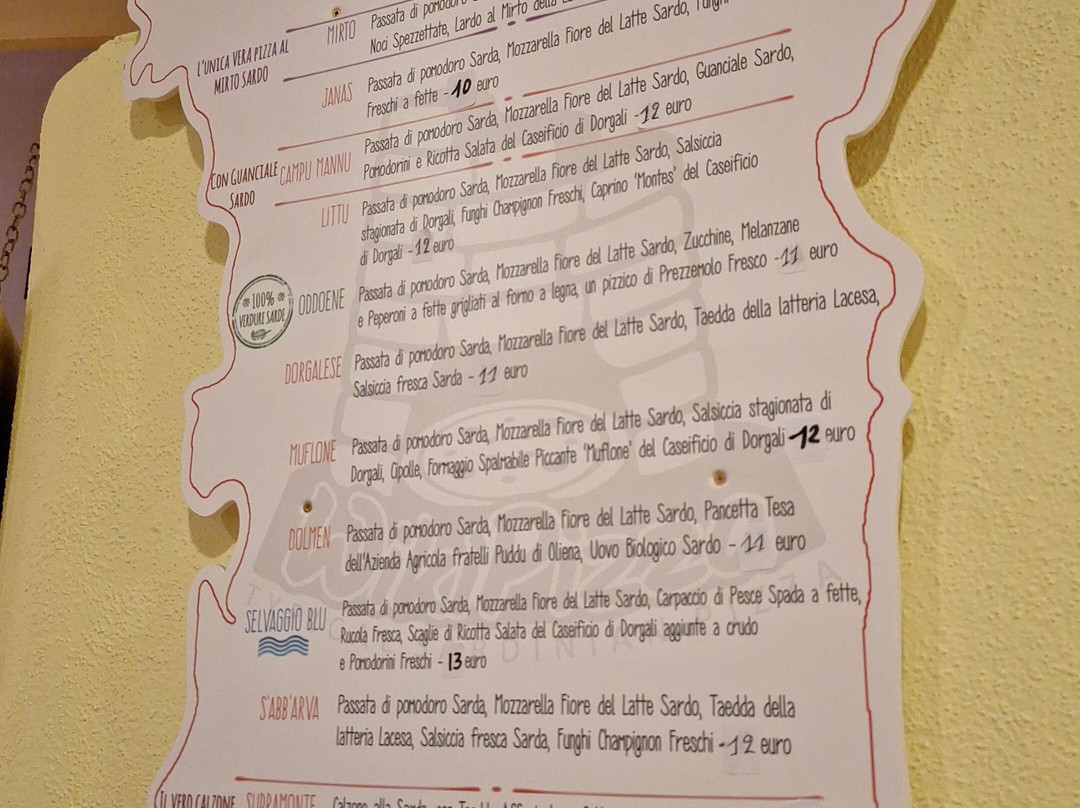 Passata di pomodoro
MIRTO
Noci Spezzettate, Lardo al Mirto
L'UNICA VERA PIZZA AL
MIRTO SARDO
Passata di pomodoro Sarda, Mozzarella Fiore del Latte Sardo, Funghi
JANAS
Freschi a fette - 10 euro
Passata di pomodoro Sarda, Mozzarella Fiore del Latte Sardo, Guanciale Sardo,
CON GUANCIALE
SARDO
CAMPU MANNU
Pomodorini e Ricotta Salata del Caseificio di Dorgali - 12 euro
Passata di pomodoro Sarda, Mozzarella Fiore del Latte Sardo, Salsiccia
LITTU
stagionata di Dorgali, Funghi Champignon Freschi, Caprino 'Montes' del Caseificio
di Dorgali - 12 euro
100%
VERDURE SARDE
ODDOENE
Passata di pomodoro Sarda, Mozzarella Fiore del Latte Sardo, Zucchine, Melanzane
e Peperoni a fette grigliati al forno a legna, un pizzico di Prezzemolo Fresco - 11 euro
DORGALESE
Passata di pomodoro Sarda, Mozzarella Fiore del Latte Sardo, Taedda della latteria Lacesa,
Salsiccia fresca Sarda - 11 euro
MUFLONE
Passata di pomodoro Sarda, Mozzarella Fiore del Latte Sardo, Salsiccia stagionata di
Dorgali, Cipolle, Formaggio Spalmabile Piccante 'Muflone' del Caseificio di Dorgali - 12 euro
DOLMEN
Passata di pomodoro Sarda, Mozzarella Fiore del Latte Sardo, Pancetta Tesa
dell'Azienda Agricola fratelli Puddu di Oliena, Uovo Biologico Sardo - 11 euro
SELVAGGIO BLU
Passata di pomodoro Sarda, Mozzarella Fiore del Latte Sardo, Carpaccio di Pesce Spada a fette,
Rucola Fresca, Scaglie di Ricotta Salata del Caseificio di Dorgali aggiunte a crudo
e Pomodorini Freschi - 13 euro
S'ABB'ARVA
Passata di pomodoro Sarda, Mozzarella Fiore del Latte Sardo, Taedda della
latteria Lacesa, Salsiccia fresca Sarda, Funghi Champignon Freschi - 12 euro
IL VERO CALZONE
SUPRAMONTE
Calzone alla Sarda